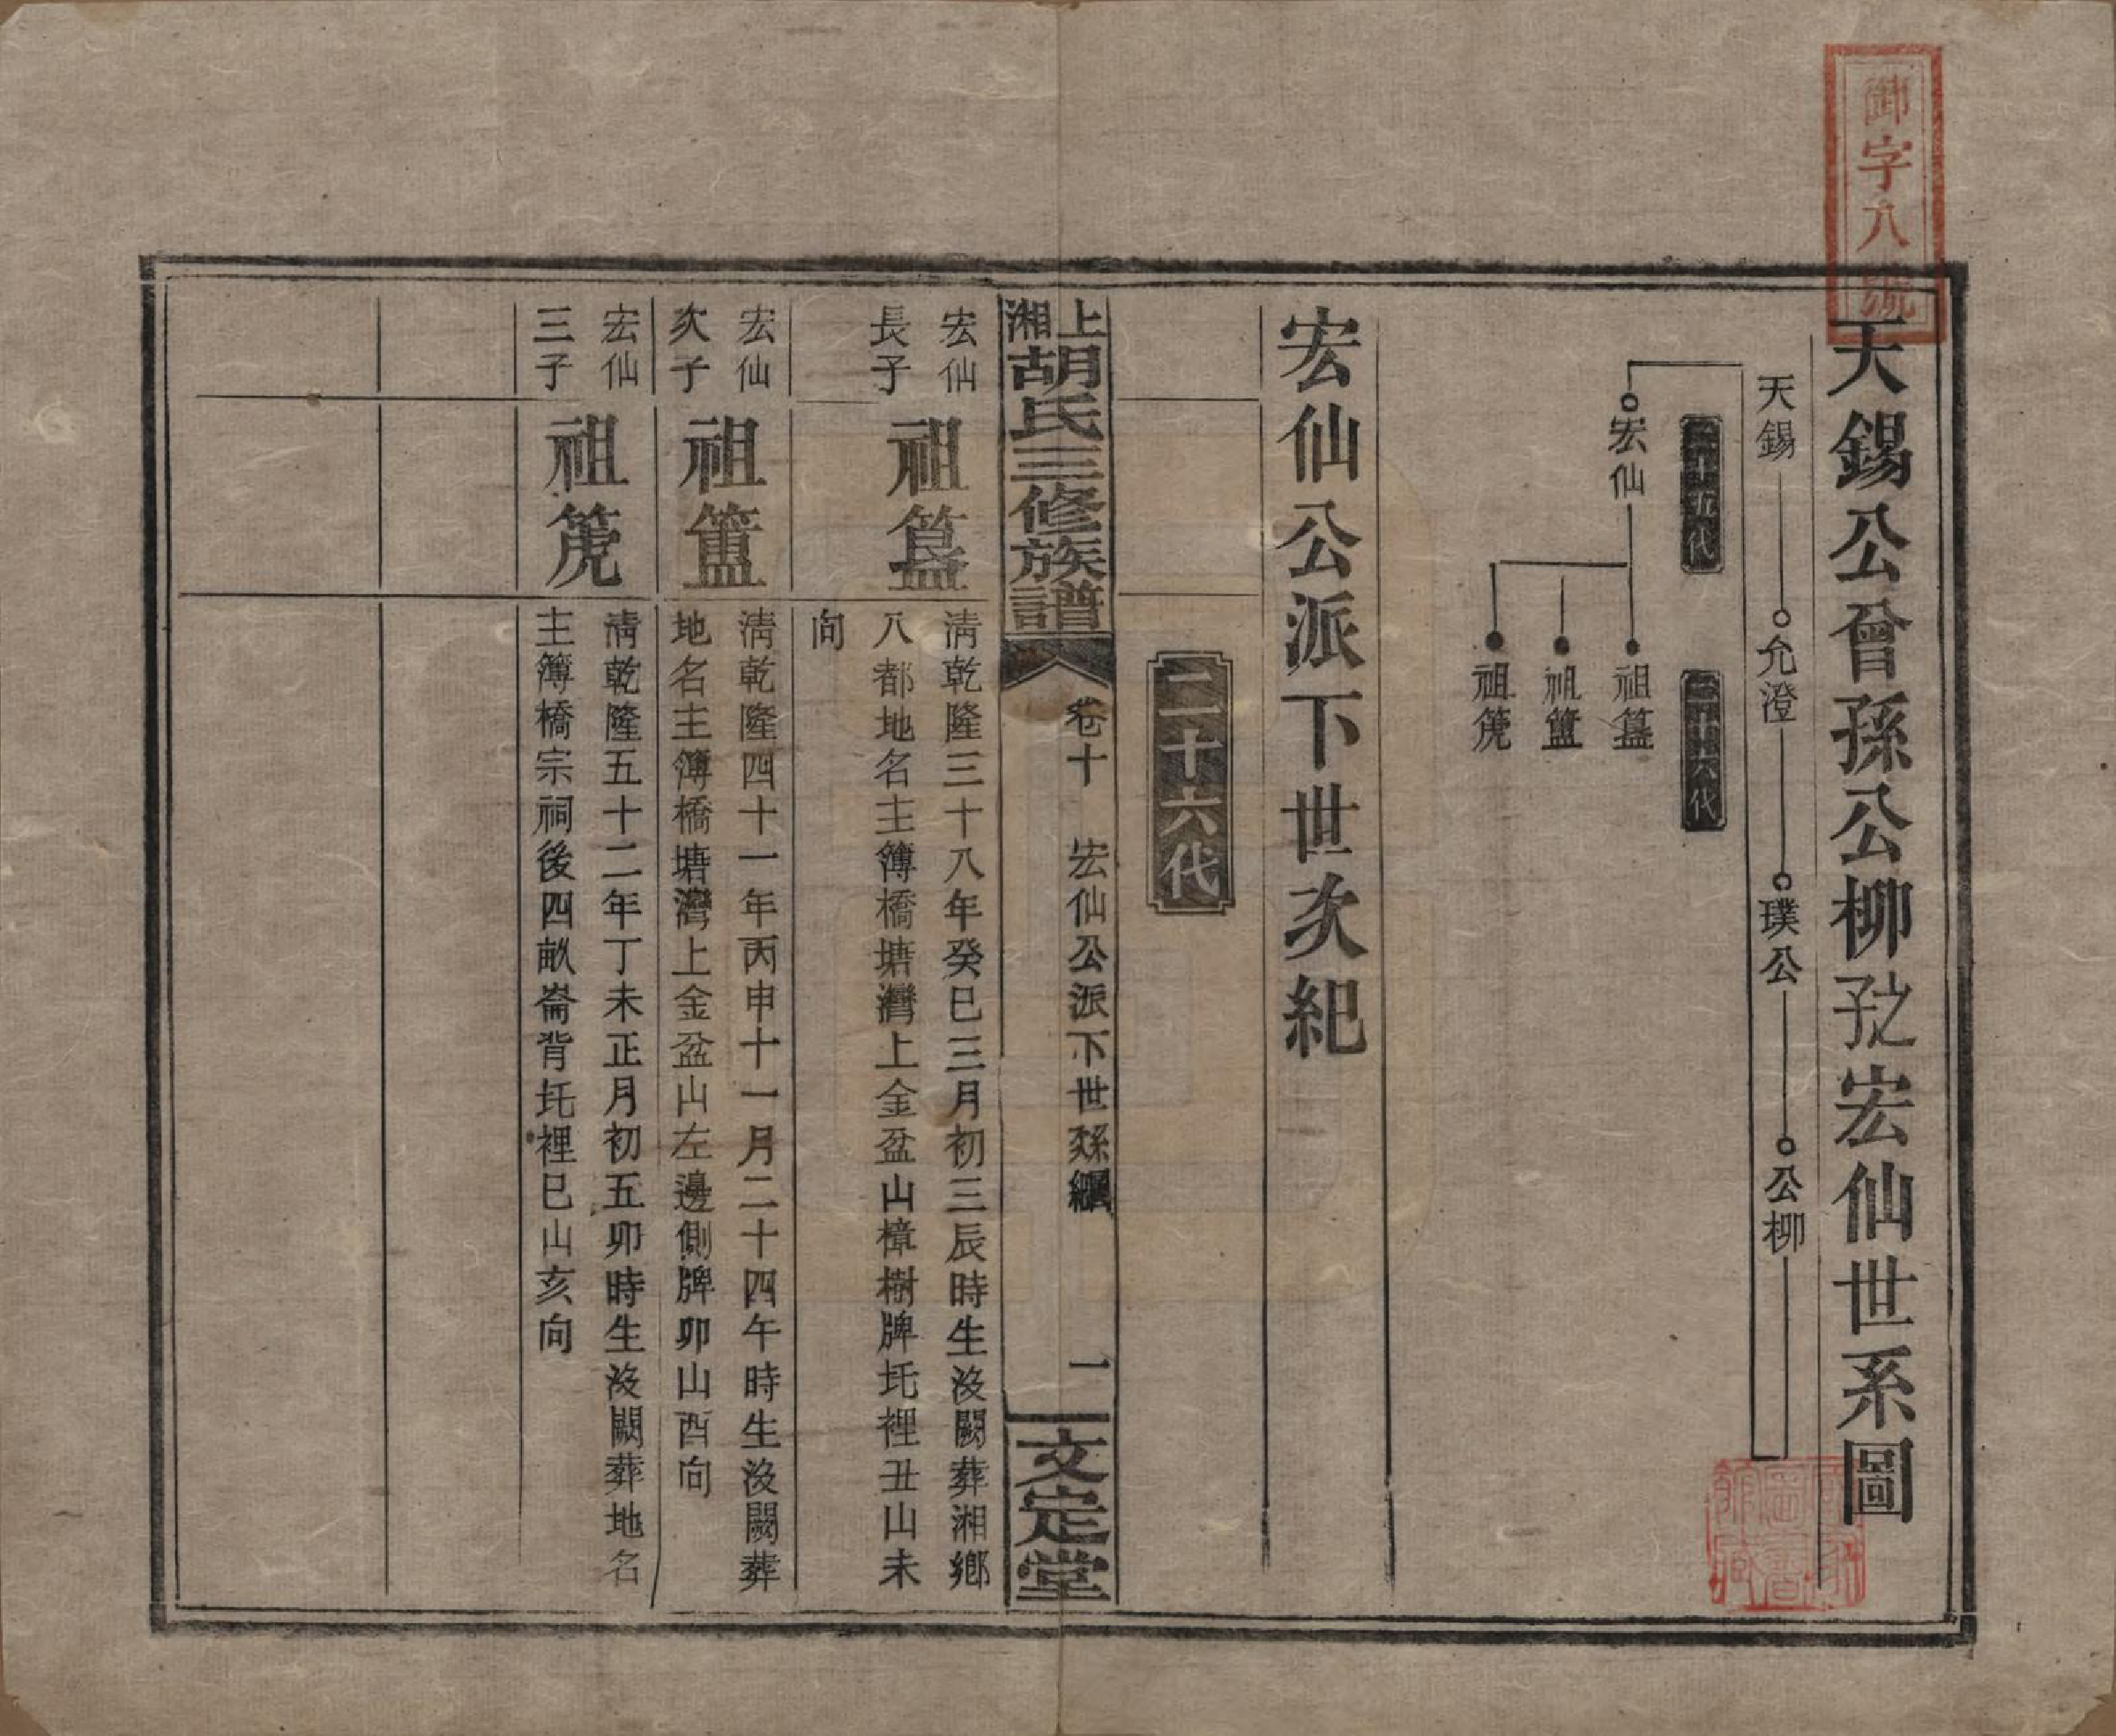 御字八號
天錫公曾孫公柳孜宏仙世系圖
天錫 允澄 璞公 公柳
二十五代
二十六代
宏仙
祖簋
祖簠
祖篪
宏仙公派下世次紀
二十六代
上湘胡氏三修族譜
卷十 宏仙公派下世系 一
文定堂
宏仙
長子
祖簋
清乾隆三十八年癸巳三月初三辰時生沒闕葬湘鄉
八都地名主簿橋塘灣上金盆山樟樹牌圫裡丑山未
向
宏仙
次子
祖簠
清乾隆四十一年丙申十一月二十四午時生沒闕葬
地名主簿橋塘灣上金盆山左邊側牌卯山酉向
宏仙
三子
祖篪
清乾隆五十二年丁未正月初五卯時生沒闕葬地名
主簿橋宗祠後四畝崙背圫裡巳山亥向